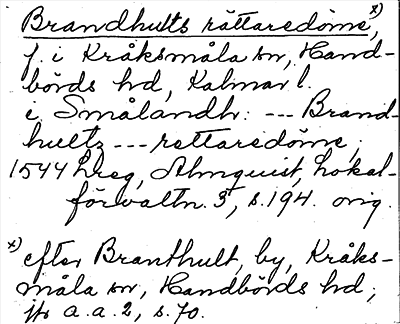 Brandhults rättaredöme, x)
f. i Kråksmåla sn, Hand-
börds hd, Kalmar l.
i Smålandh: --- Brand-
hultz --- rettaredöme,
1544 Lreg, Almquist, Lokal-
förvaltn. 3, s. 194. orig.
x) efter Branthult, by, Kråks-
måla sn, Handbörds hd;
jfr a.a. 2, s. 70.